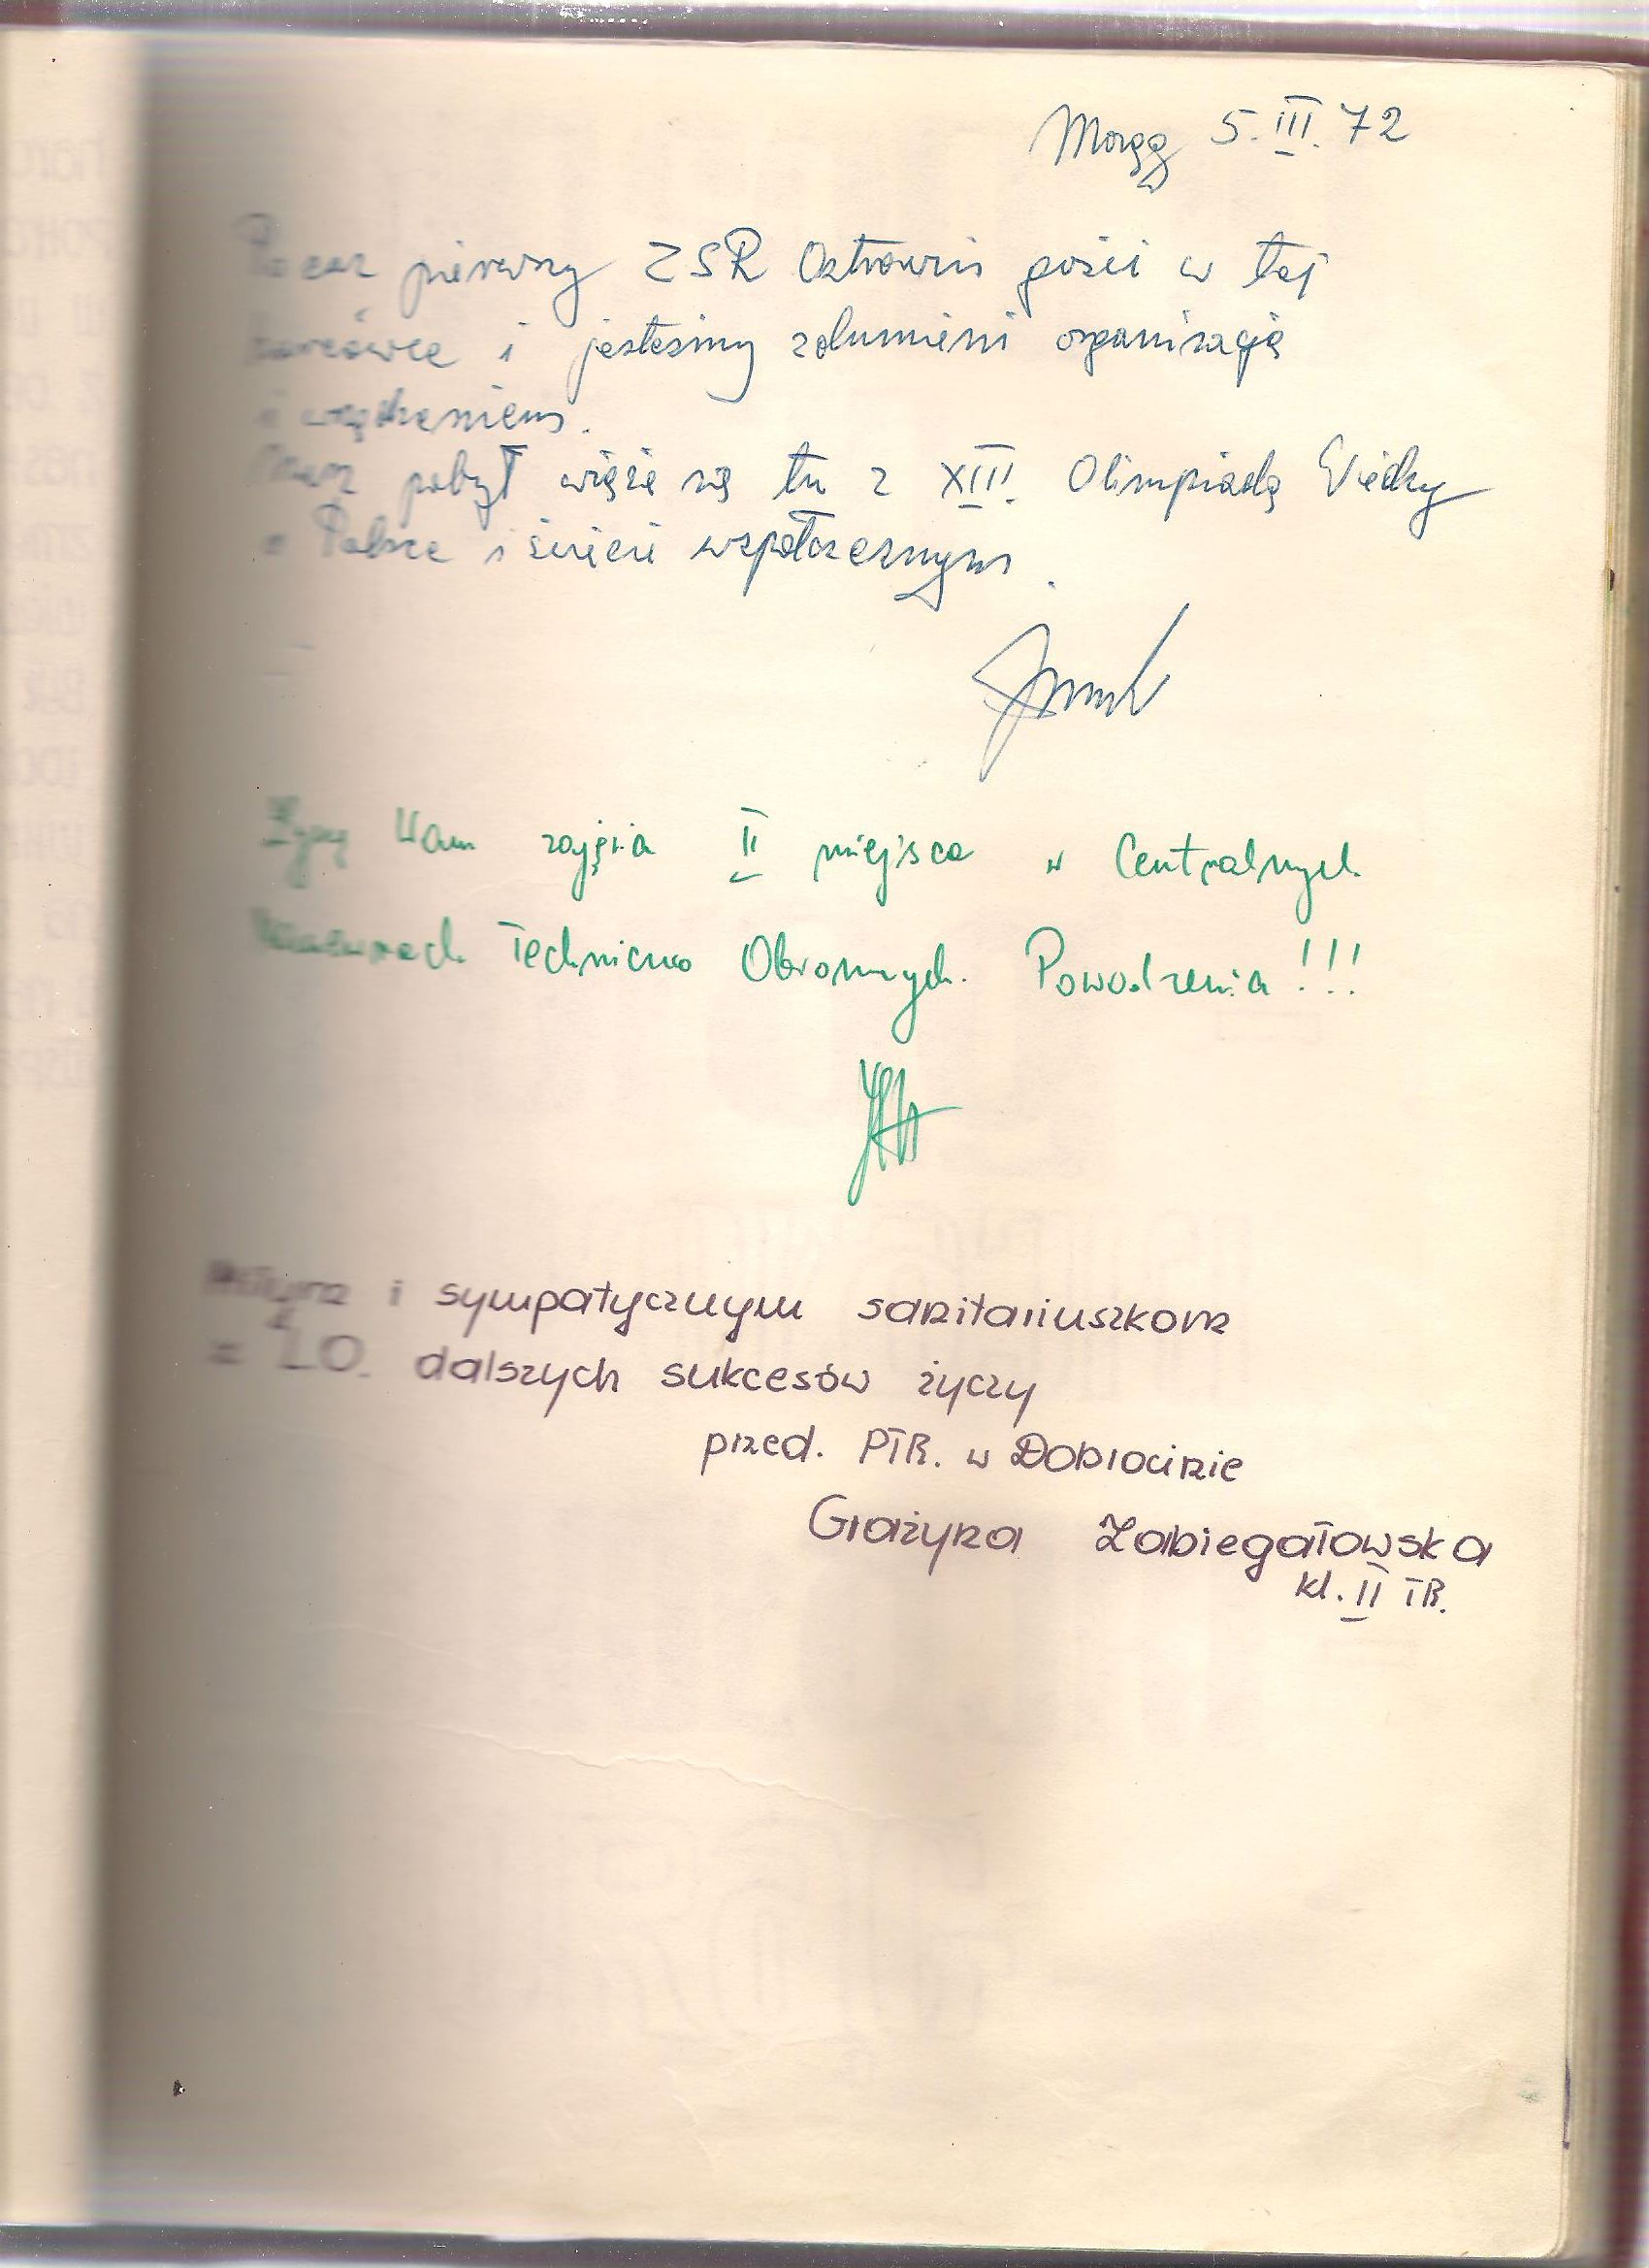 Morąg 5.III.72
Po raz pierwszy ZSR Ostrowin gości w tej
placówce i jesteśmy zdumieni organizacją
i urządzeniem.
Nasz pobyt wiąże się tu z XIII. Olimpiadą Wiedzy
o Polsce i świecie współczesnym.
Życzę Wam zajęcia II miejsca w Centralnych
Manewrach Techniczno Obronnych. Powodzenia!!!
i sympatycznym sanitariuszkom
z LO. dalszych sukcesów życzy
przed. PTR. w Dobrocinie
Grażyna Zabiegałowska
kl. II TR.